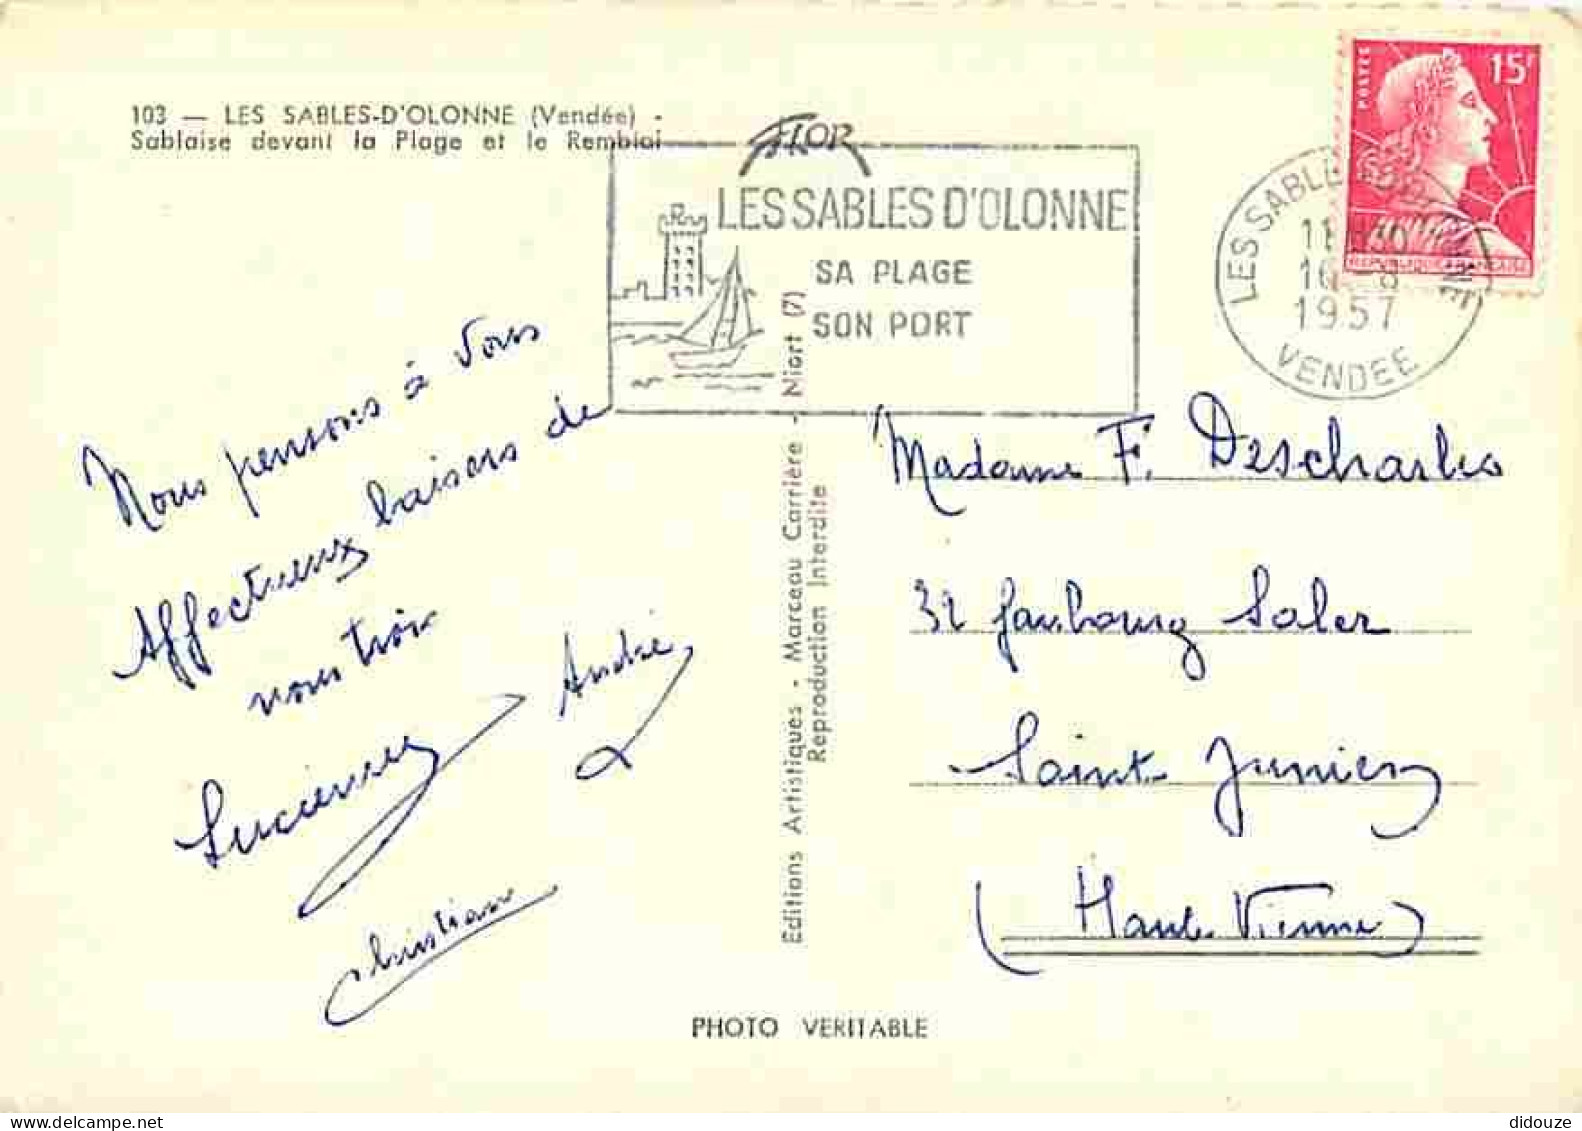 103 — LES SABLES-D'OLONNE (Vendée) -
Sablaise devant la Plage et le Remblai
LES SABLES D'OLONNE
SA PLAGE
SON PORT
LES SABLES D'OLONNE
1957
VENDEE
POSTES
15F
REPUBLIQUE FRANCAISE
Nous pensons à Vous
Affectueux baisers de
nous trois
André
Lucienne
Christian
Editions Artistiques - Marceau Carrière - Niort (7)
Reproduction Interdite
Madame F. Descharles
32 faubourg Saler
Saint Junien
(Haute Vienne)
PHOTO VERITABLE
didouze